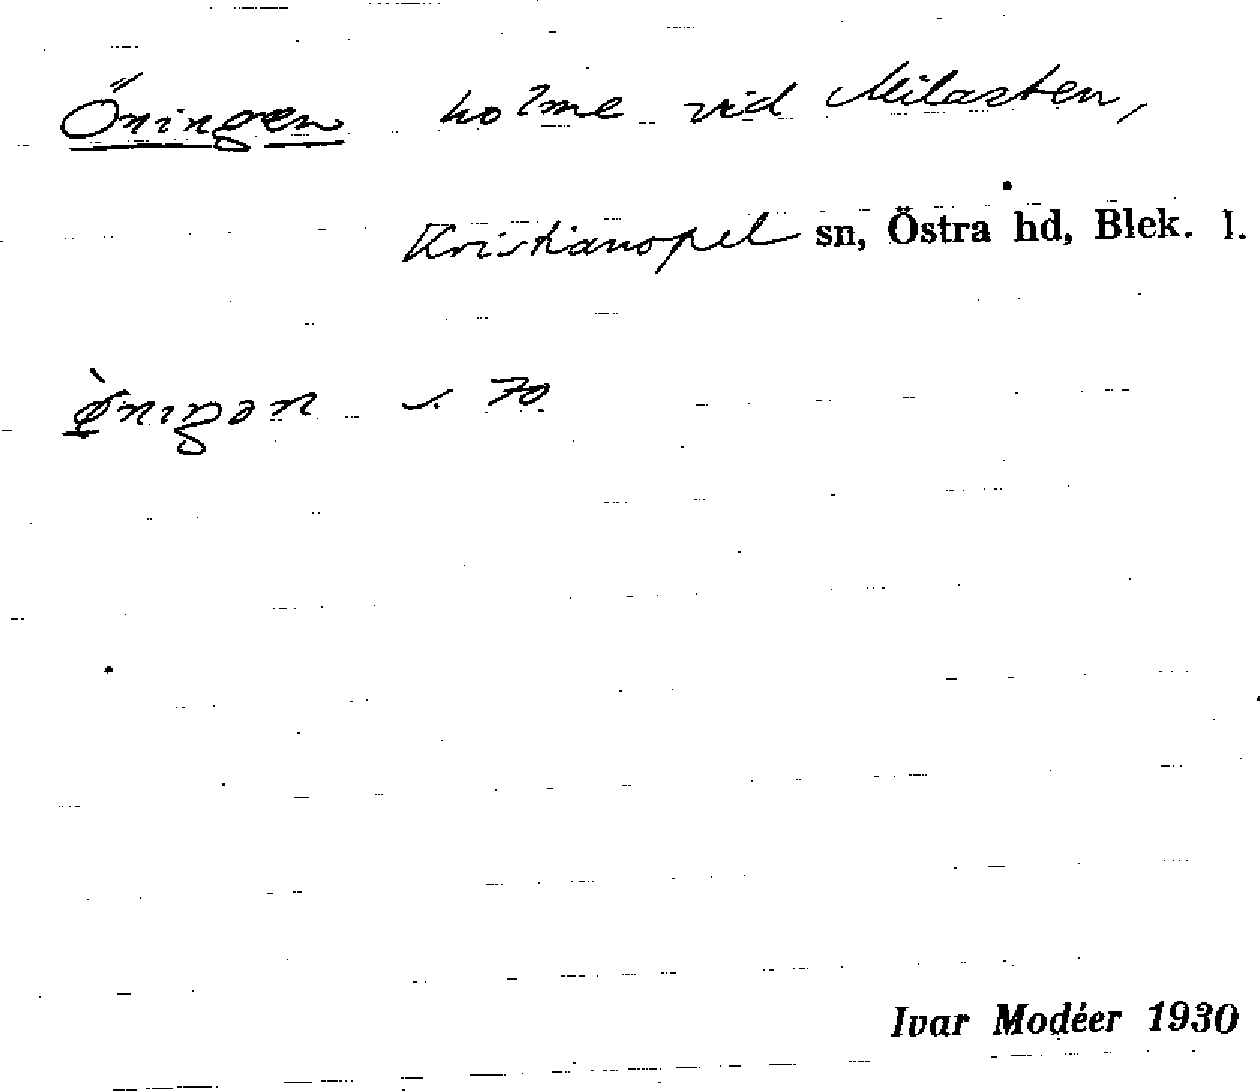 Öningen holme vid Milasten,
Kristianopel sn, Östra hd, Blek. l.
s. 70
Ivar Modéer 1930